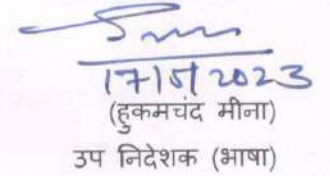 17/5/2023
(हुकमचंद मीना)
उप निदेशक (भाषा)